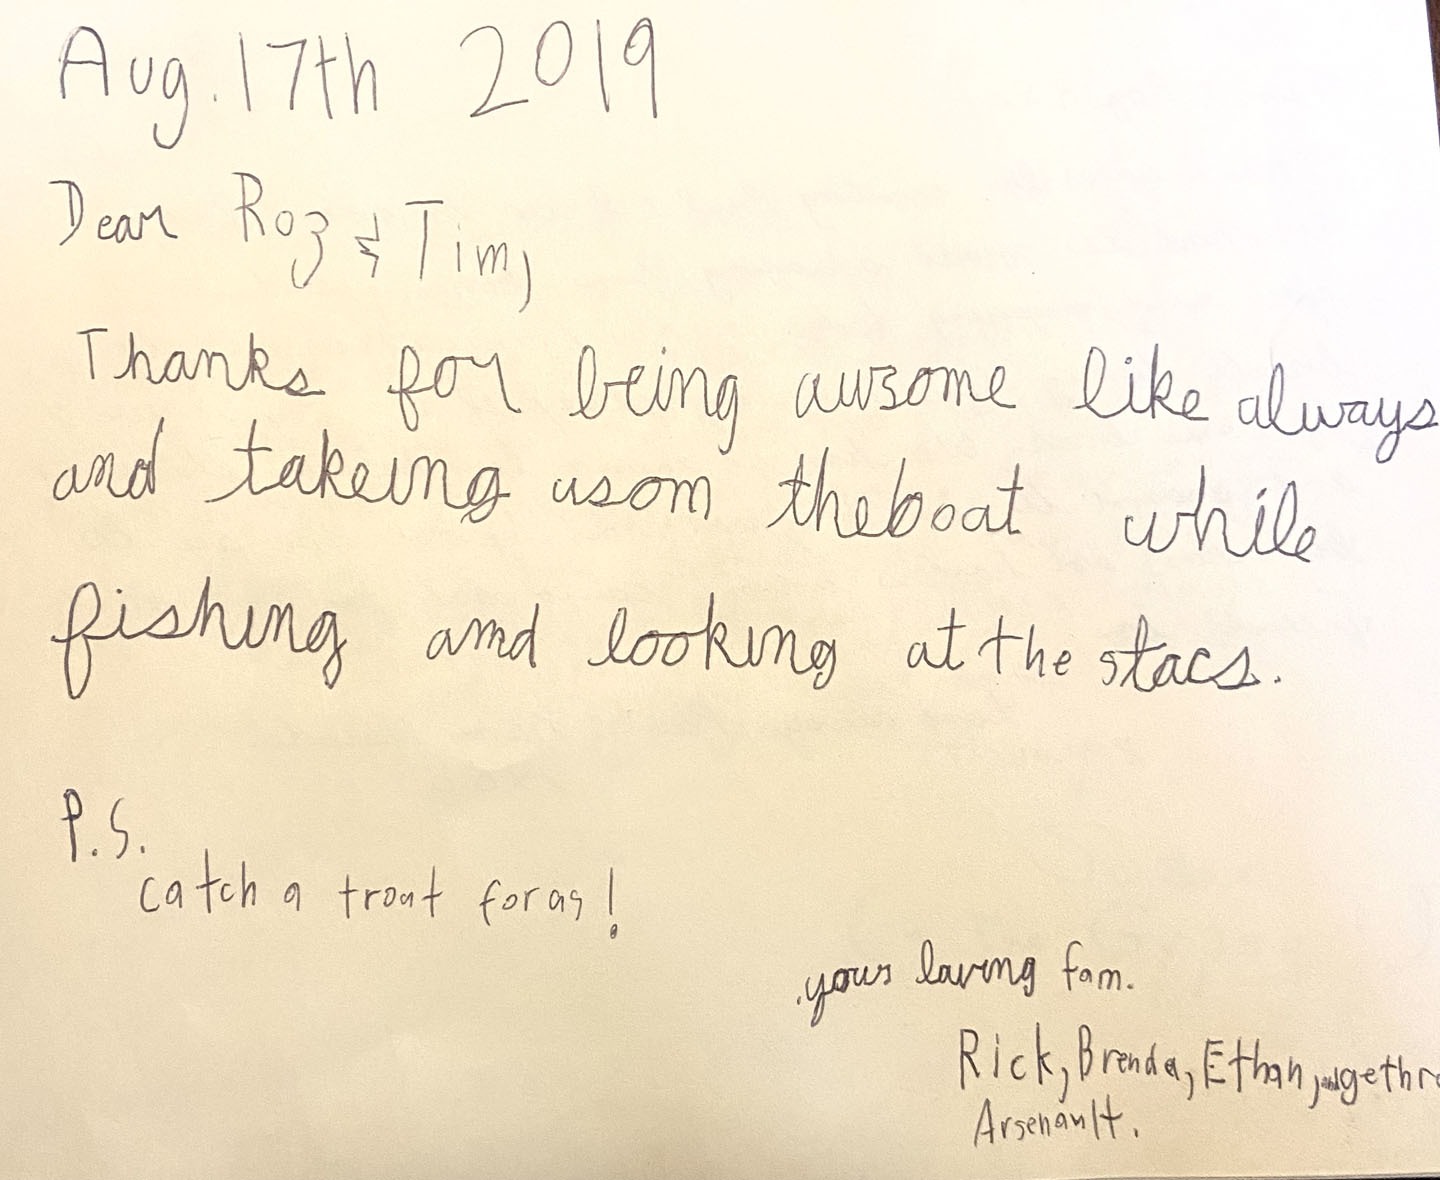 Aug. 17th 2019
Dear Roz & Tim,
Thanks for being awsome like always
and takeing us om the boat while
fishing amd looking at the stacs.
P.S.
catch a trout for us!
yours loving fam.
Rick, Brenda, Ethan, and gethro
Arsenault.